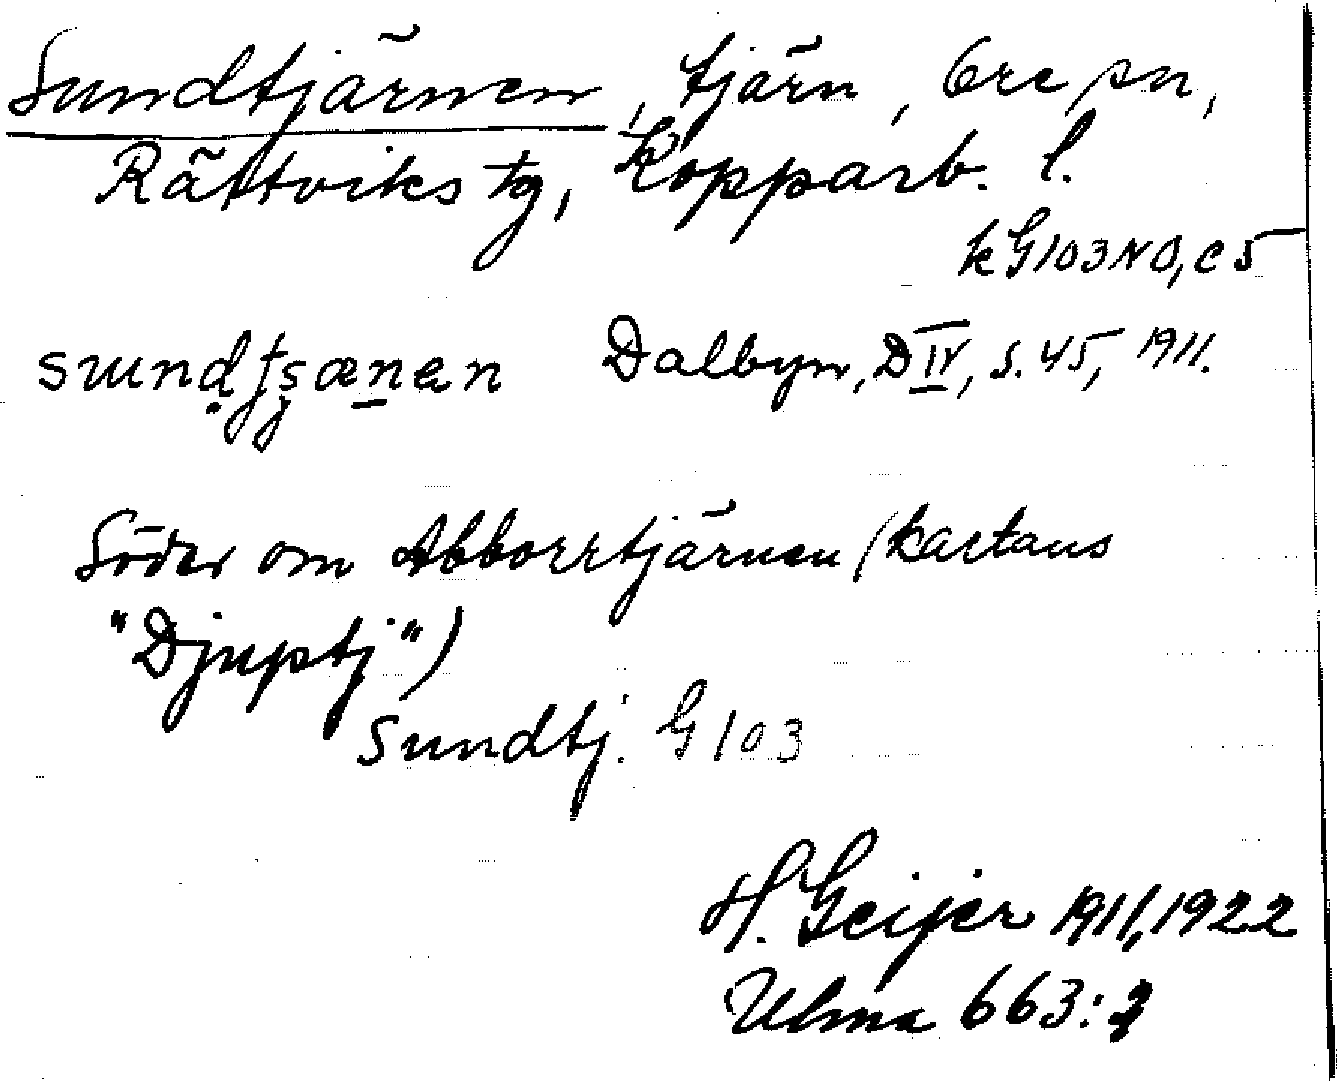 Sundtjärnen, tjärn, Ore sn,
Rättviks tg, Kopparb. l.
k G103NO, c5
Dalbyn, D IV, s. 45, 1911.
Söder om Abborrtjärnen (kartans
"Djuptj")
Sundtj. G103
H. Geijer 1911, 1922
Ulma 663: